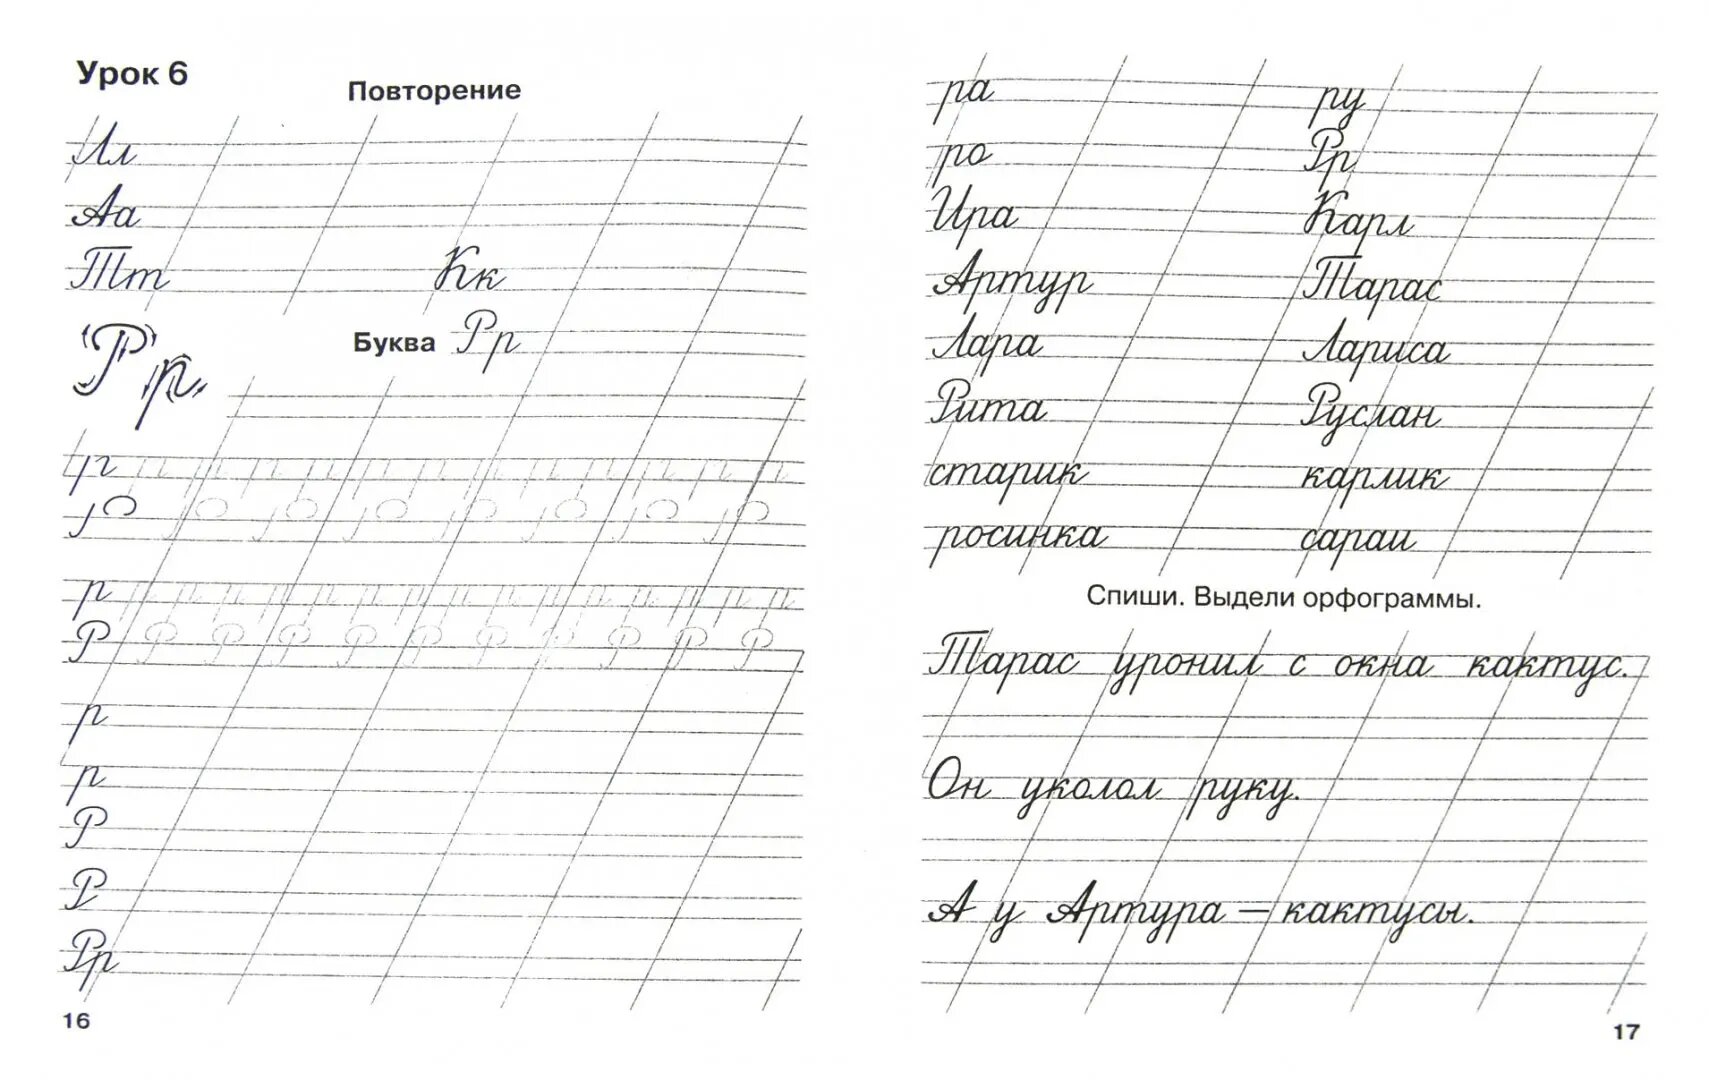 Урок 6
Повторение
Лл
Аа
Тт Кк
Буква Рр
Рр
р р р р р р р р р р р р
Р Р Р Р Р Р Р Р Р Р
р
р
Р
Р
Рр
16
ра ру
ро Рр
Ира Карл
Артур Тарас
Лара Лариса
Рита Руслан
старик карлик
росинка сараи
Спиши. Выдели орфограммы.
Тарас уронил с окна кактус.
Он уколол руку.
А у Артура – кактусы.
17